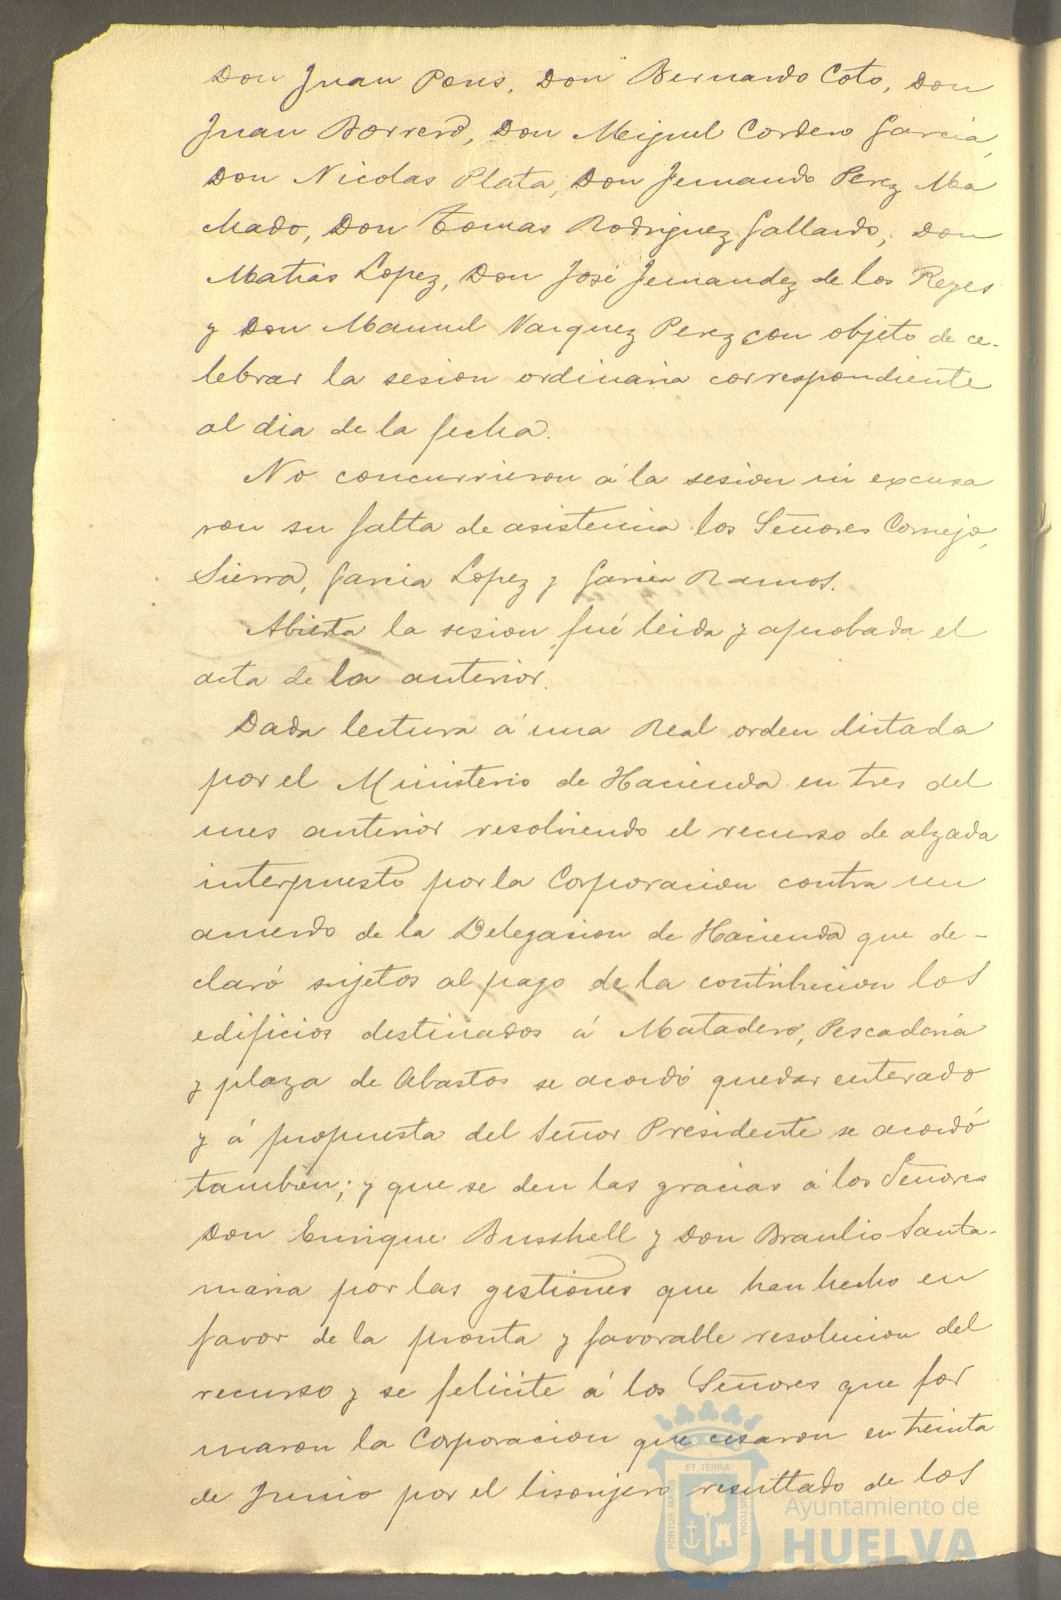 Don Juan Pons, Don Bernardo Coto, Don
Juan Borrero, Don Miguel Cordero Garcia,
Don Nicolas Plata, Don Fernando Perez Ma
chado, Don Tomas Rodriguez Gallardo, Don
Matias Lopez, Don José Fernandez de los Reyes
y Don Manuel Vazquez Perez con objeto de ce-
lebrar la sesion ordinaria correspondiente
al dia de la fecha.
No concurrieron á la sesion ni excusa
ron su falta de asistencia los Señores Cornejo,
Sierra, Garcia Lopez y Garcia Ramos.
Abierta la sesion fué leida y aprobada el
acta de la anterior.
Dada lectura á una Real orden dictada
por el Ministerio de Hacienda en tres del
mes anterior resolviendo el recurso de alzada
interpuesto por la Corporacion contra un
acuerdo de la Delegacion de Hacienda que de-
claró sujetos al pago de la contribucion los
edificios destinados á Matadero, Pescaderia
y plaza de Abastos se acordó quedar enterado
y á propuesta del Señor Presidente se acordó
tambien; y que se den las gracias á los Señores
Don Enrique Busshell y Don Braulio Santa-
maria por las gestiones que han hecho en
favor de la pronta y favorable resolucion del
recurso y se felicite á los Señores que for
maron la Corporacion que cesaron en treinta
de Junio por el lisonjero resultado de los
ET TERRÆ
PORTUS MARIS
CUSTODIA
Ayuntamiento de
HUELVA